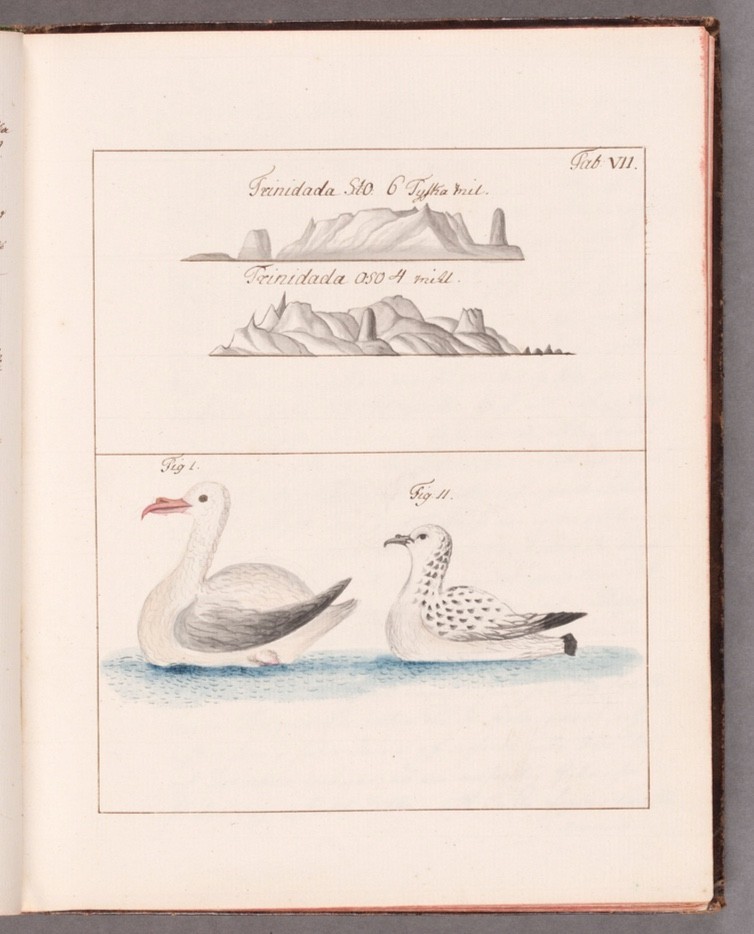 Tab VII.
Trinidada StO. 6 Tyska mil.
Trinidada OSO 4 mihl.
Fig I.
Fig II.